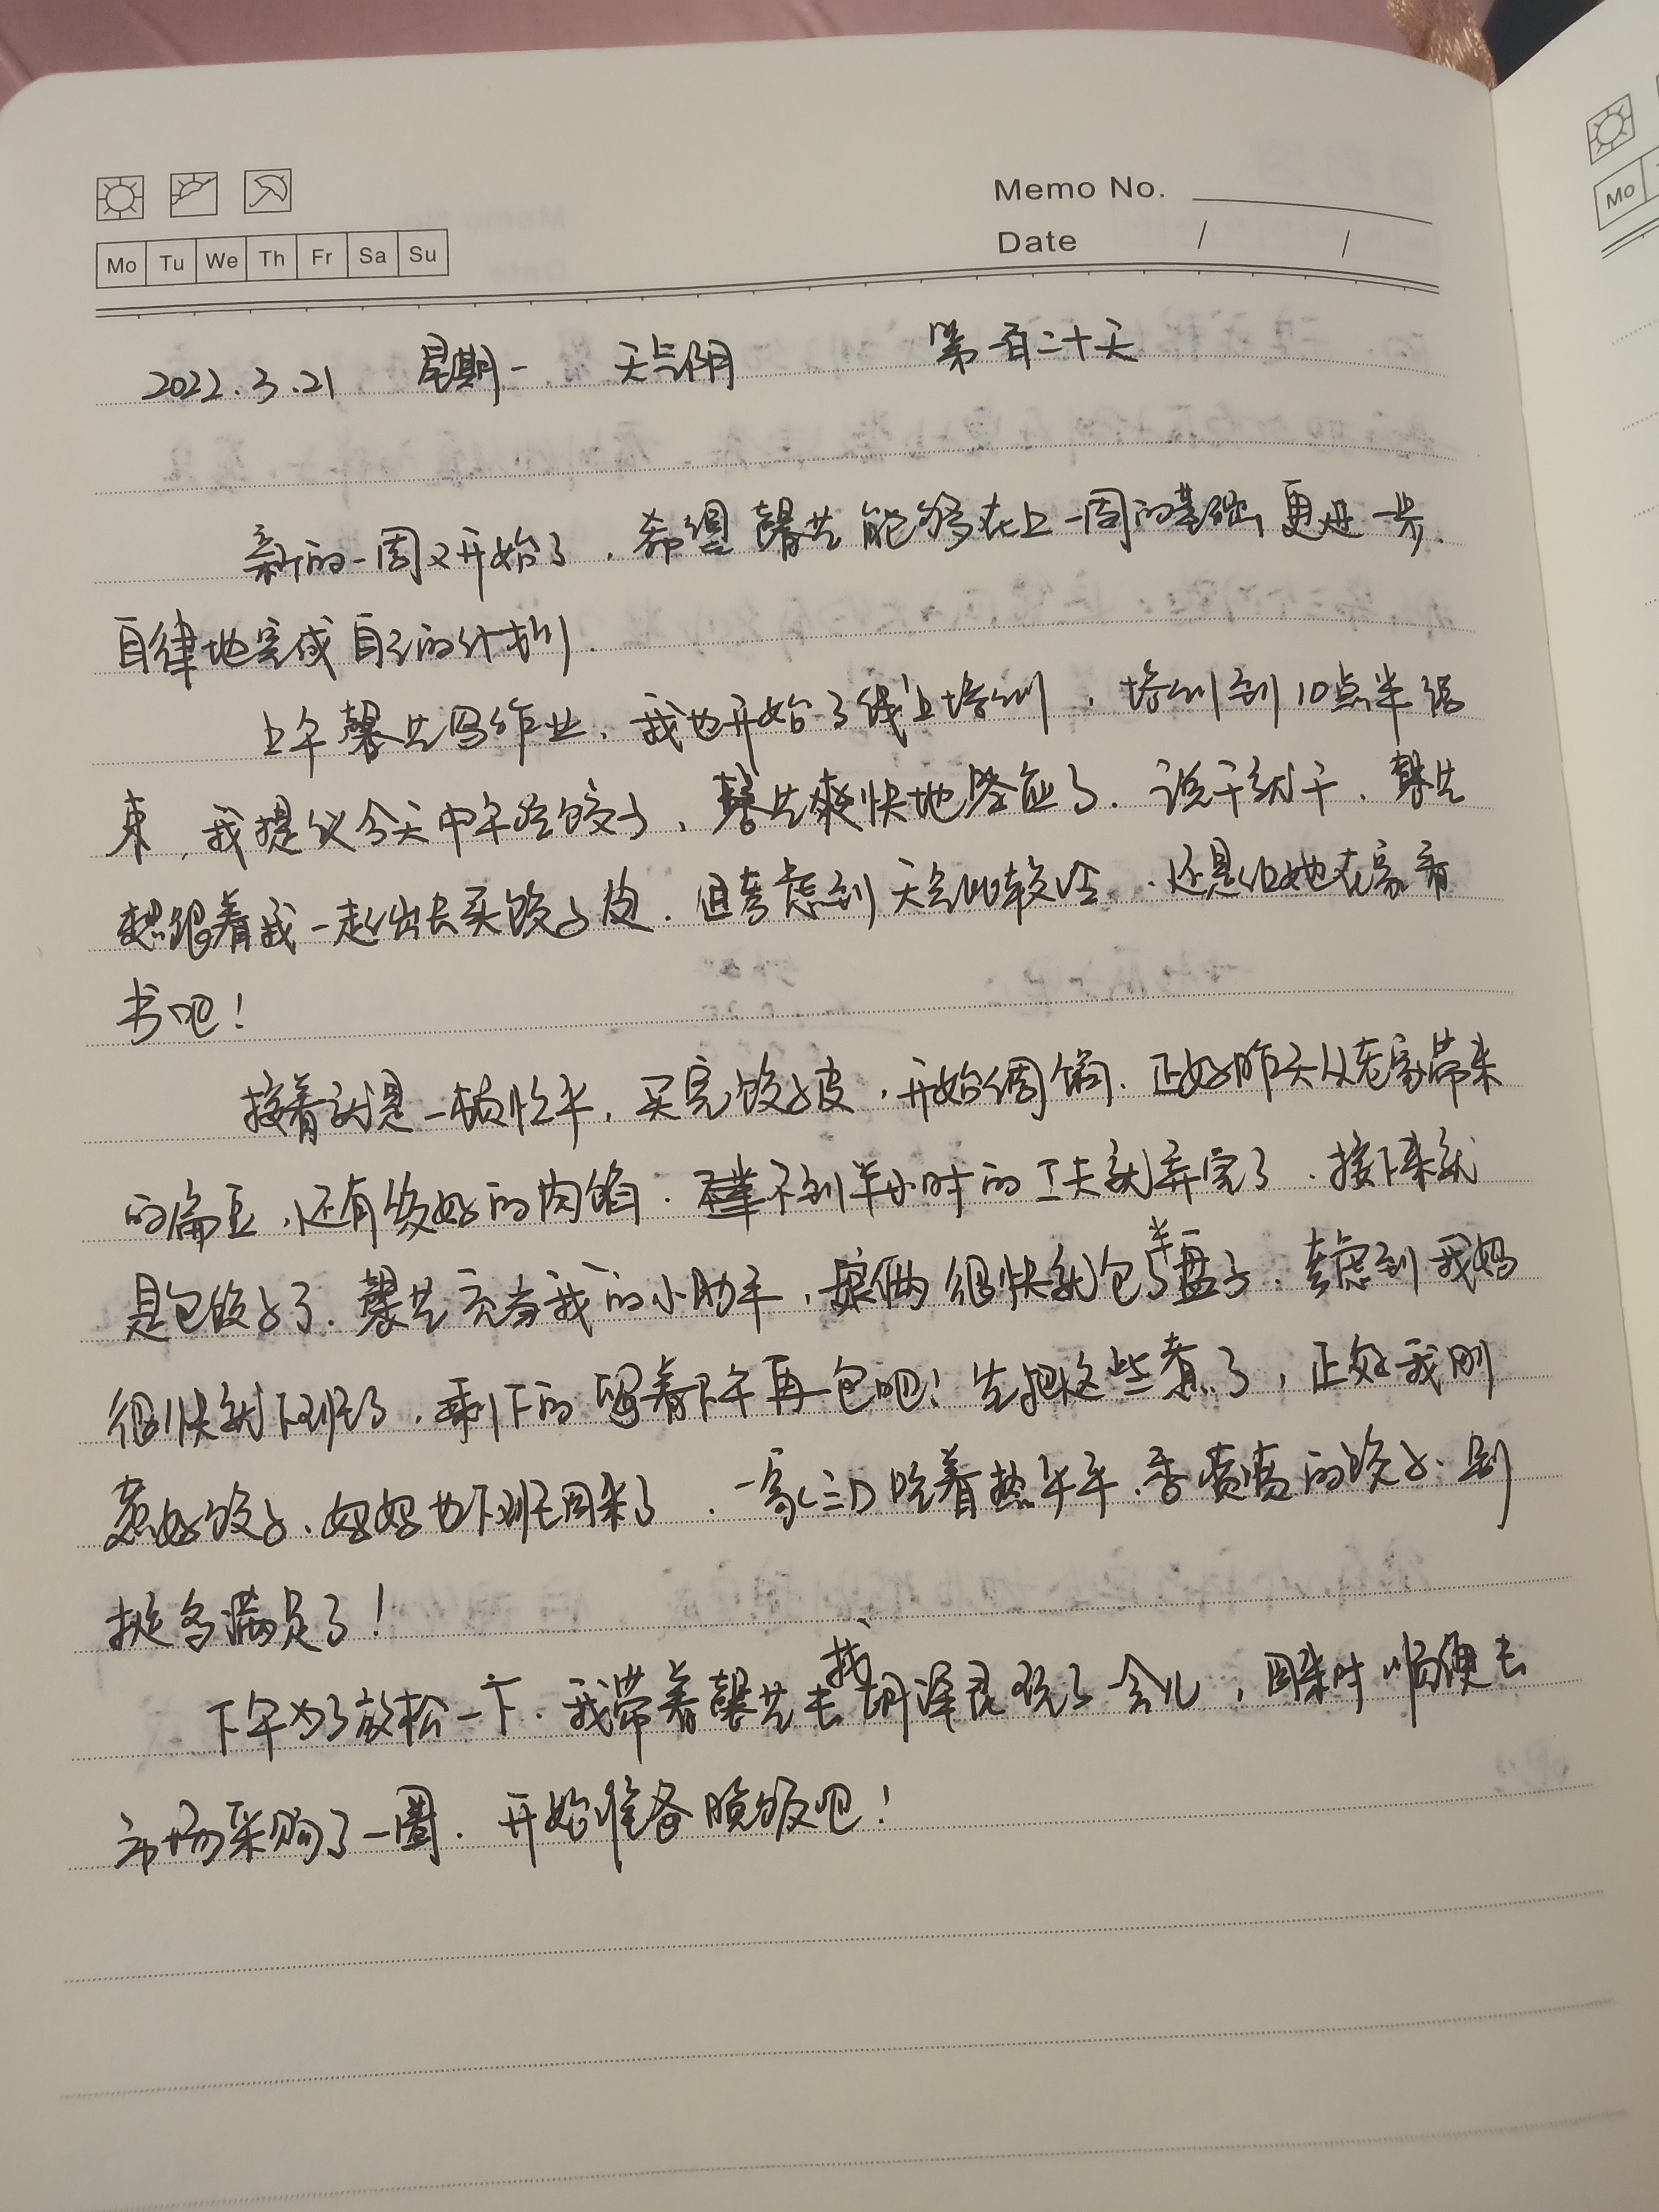 Memo No.
Mo Tu We Th Fr Sa Su
Date / /
Mo
2022.3.21 星期一 天气阴 第一百二十天
新的一周又开始了，希望馨艺能够在上一周的基础，更进一步.
自律地完成自己的计划.
上午馨艺写作业，我也开始了线上培训，培训到10点半结
束，我提议今天中午吃饺子，馨艺爽快地答应了.说干就干，馨艺
想跟着我一起出去买饺子皮.但考虑到天气比较冷，还是让她在家看
书吧！
接着就是一顿忙乎，买完饺子皮，开始调馅.正好昨天从老家带来
的扁豆，还有现成的肉馅.不到半小时的工夫就弄完了.接下来就
是包饺子了.馨艺充当我的小助手，娘俩很快就包了半盘子.考虑到我妈
很快就下班了，剩下的留着下午再包吧！先把这些煮了，正好我刚
煮好饺子、妈妈也下班回来了.一家三口吃着热乎乎、香喷喷的饺子.别
提多满足了！
下午为了放松一下.我带着馨艺去找泽玩了会儿，回来时顺便去
市场采购了一圈.开始准备晚饭吧！